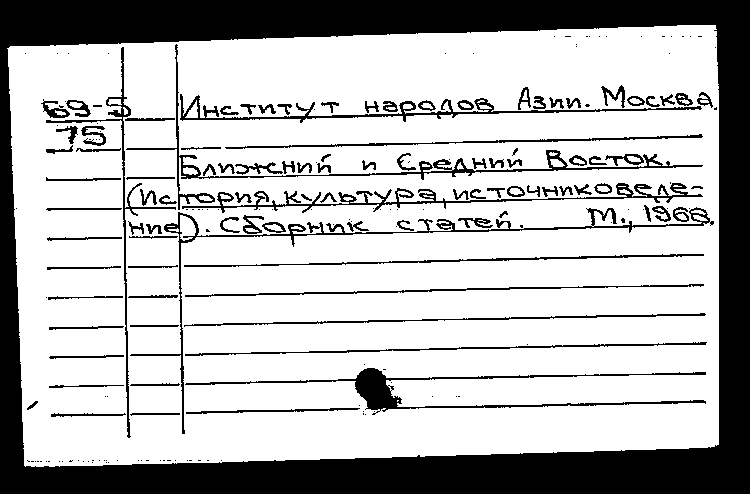 69-5 Институт народов Азии. Москва.
75
Ближний и Средний Восток.
(История, культура, источниковеде-
ние). Сборник статей. М., 1968.